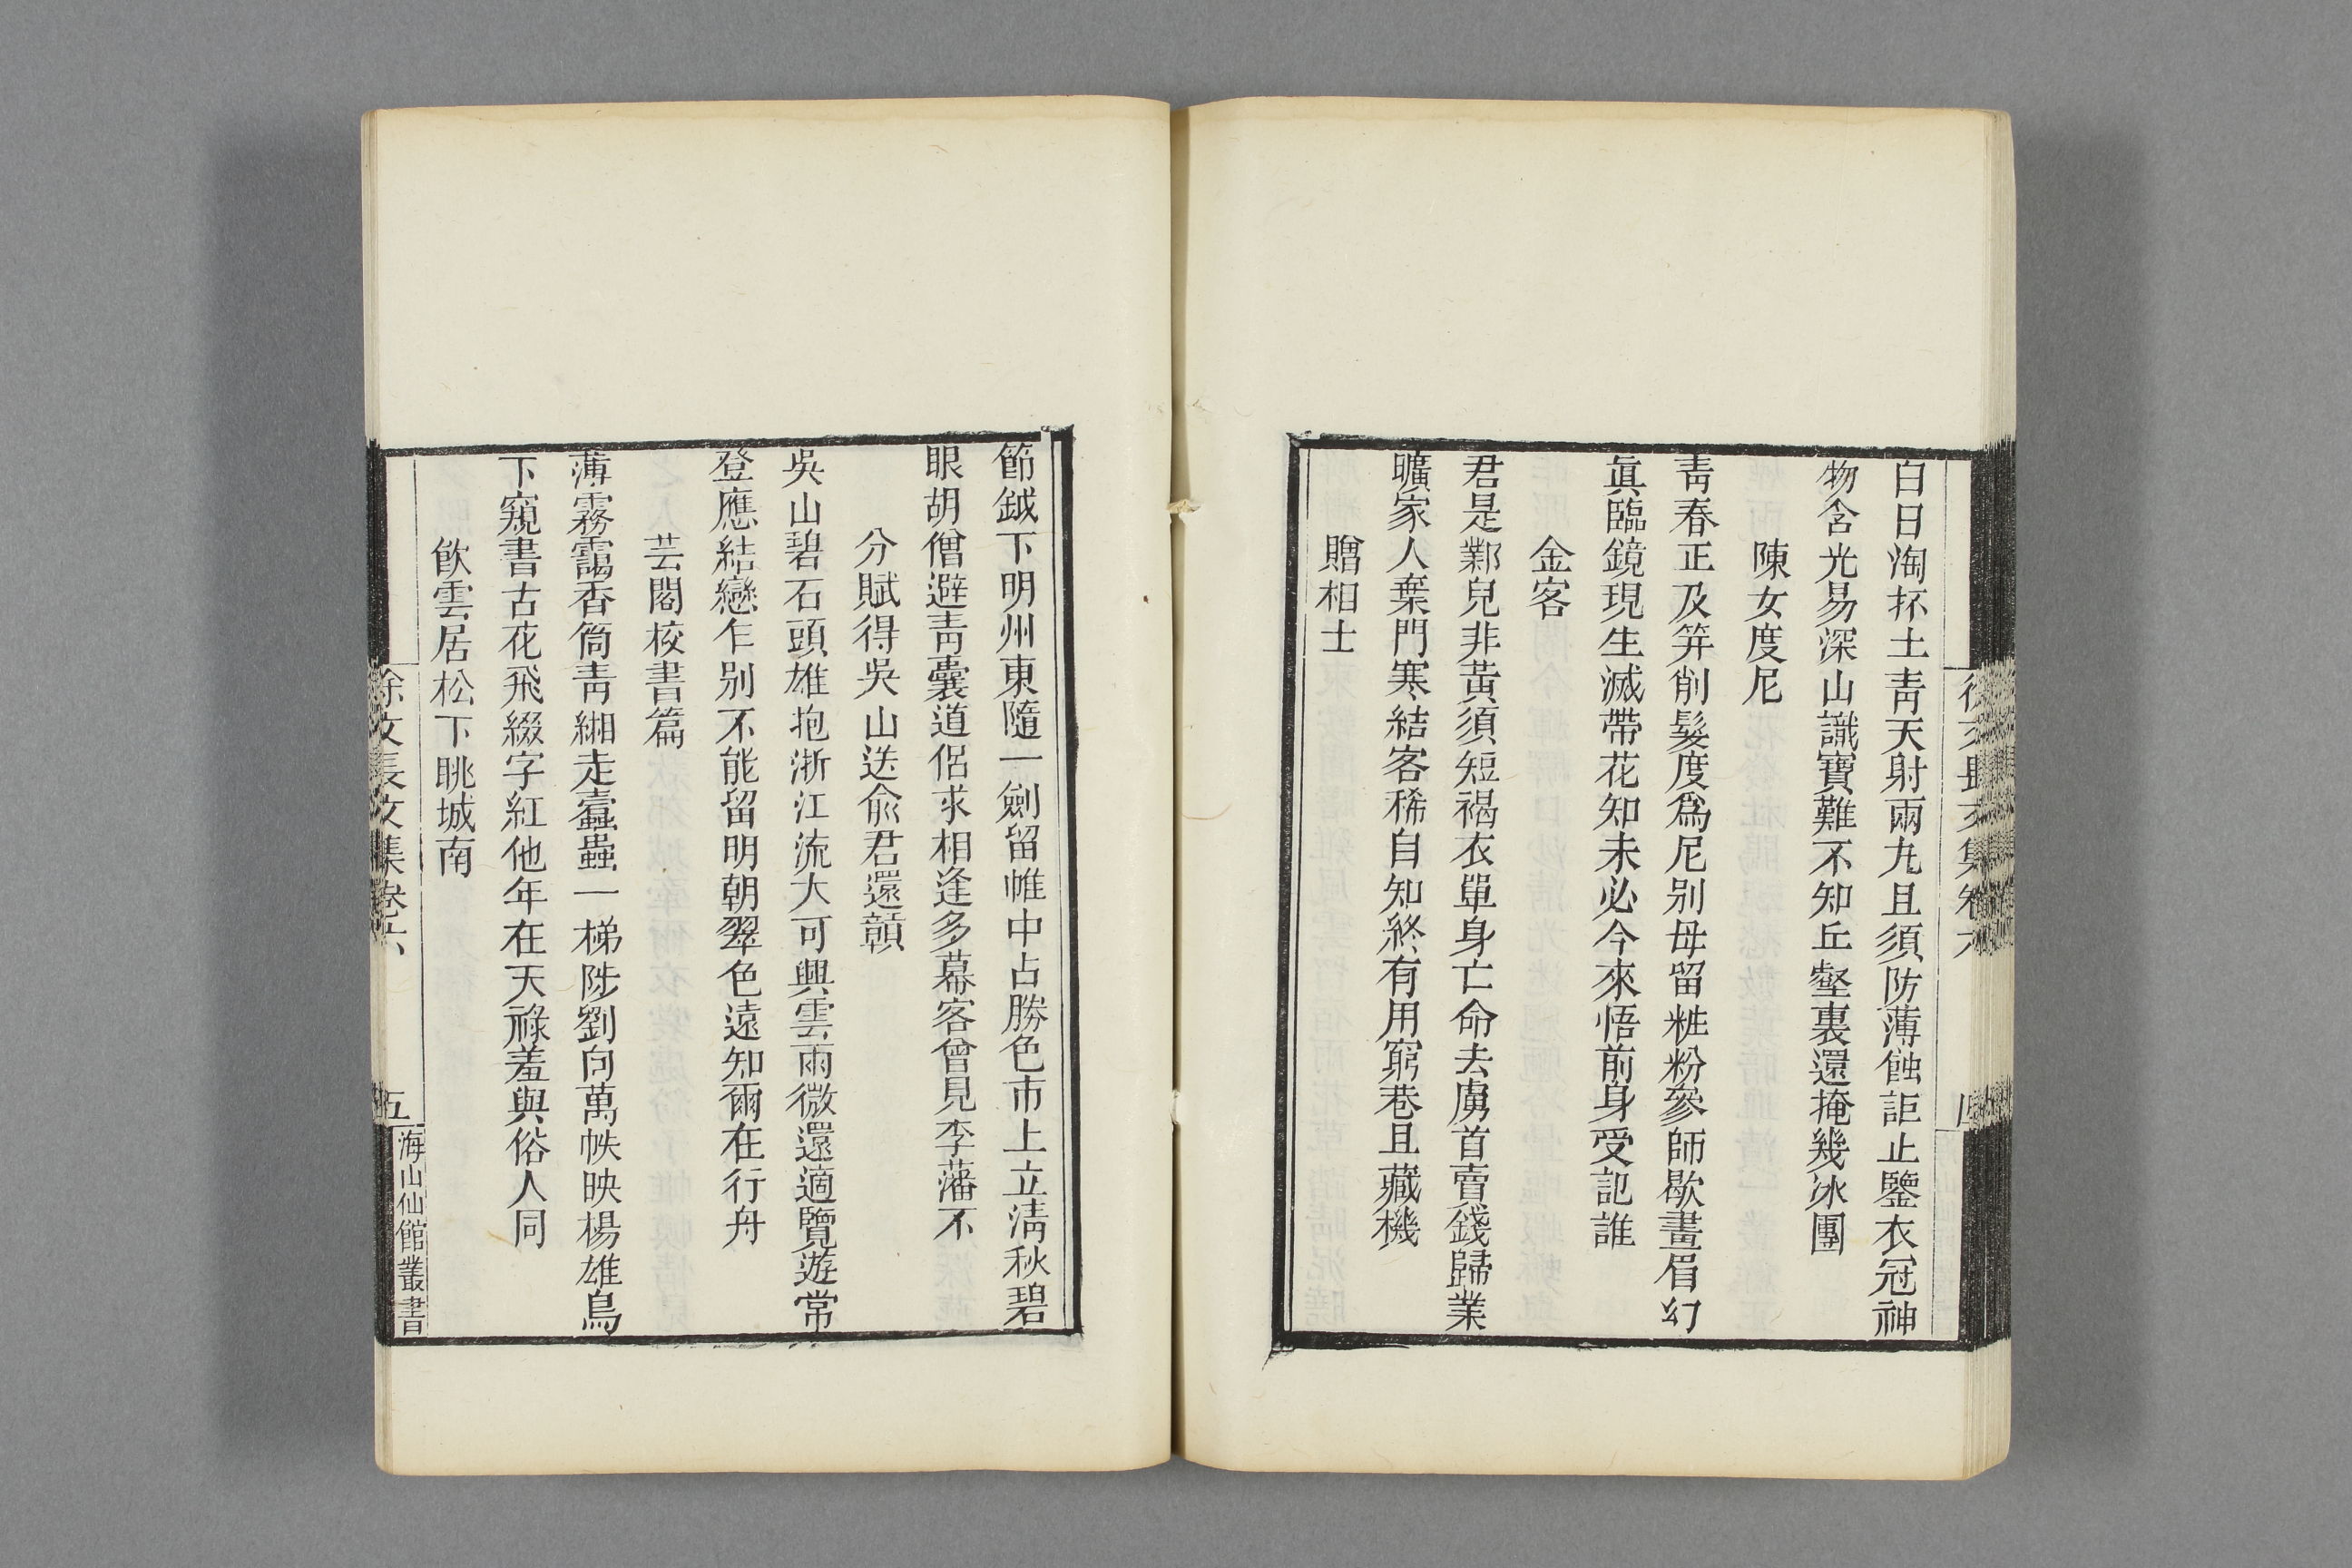 白日淘抔土青天射兩丸且須防薄蝕詎止鑒衣冠神
物含光易深山識寶難不知丘壑裏還掩幾冰團
陳女度尼
青春正及笄削髮度爲尼别母留粧粉參師歇畫眉幻
眞臨鏡現生滅帶花知未必今來悟前身受記誰
金客
君是鄴兒非黃須短褐衣單身亡命去虜首賣錢歸業
曠家人棄門寒結客稀自知終有用窮巷且藏機
贈相士
節鉞下明州東隨一劍留帷中占勝色市上立淸秋碧
眼胡僧避青囊道侶求相逢多幕客曾見李藩不
分賦得吳山送俞君還贛
吳山碧石頭雄抱浙江流大可興雲雨微還適覽遊常
登應結戀乍别不能留明朝翠色遠知爾在行舟
芸閣校書篇
薄霧靄香筒靑緗走蠹蟲一梯陟劉向萬帙映楊雄鳥
下窺書古花飛綴字紅他年在天祿羞與俗人同
飮雲居松下眺城南
徐文長文集卷六
五
海山仙館叢書